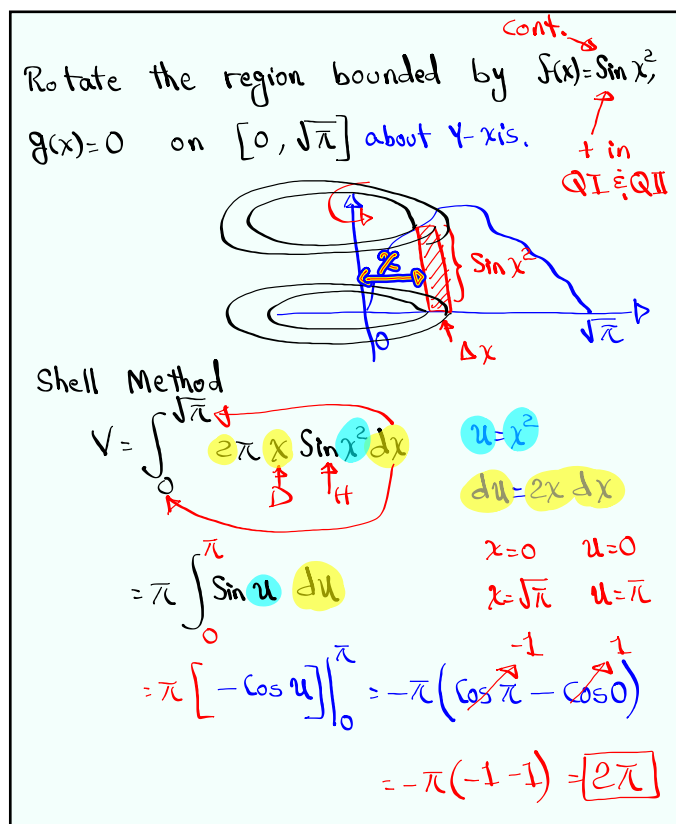 cont.
Rotate the region bounded by f(x)=Sin x²,
g(x)=0 on [0, √π] about Y-xis.
+ in
QI & QII
x
Sin x²
0
Δx
√π
Shell Method
V = ∫₀^√π 2π x Sin x² dx
D H
u = x²
du = 2x dx
x=0 u=0
x=√π u=π
= π ∫₀^π Sin u du
= π [-Cos u] |₀^π = -π (Cos π - Cos 0)
-1 1
= -π(-1 -1) = 2π